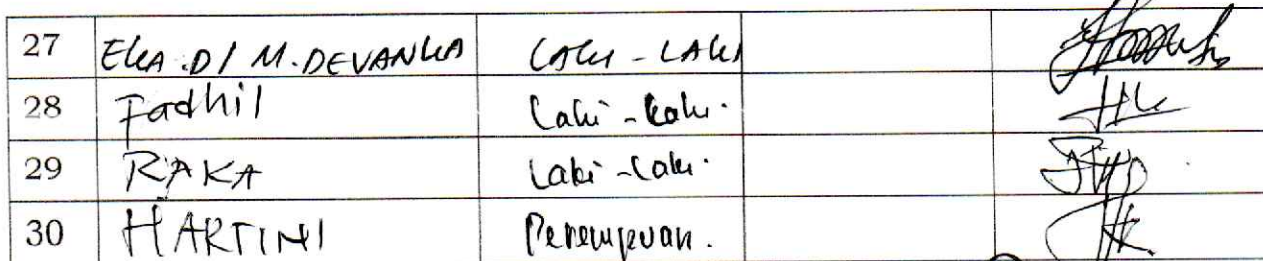 27 EKA.D/ M.DEVANKA LAKI - LAKI
28 Fadhil Laki - Laki.
29 RAKA Laki - Laki.
30 HARTINI Perempuan.